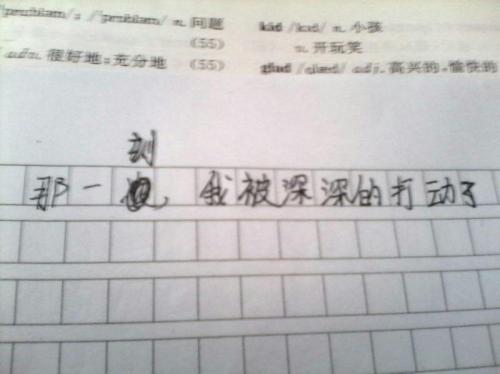 /ˈprɒbləm/ n. 问题
(55)
adv. 很好地；充分地 (55)
kid /kɪd/ n. 小孩
v. 开玩笑
glad /glæd/ adj. 高兴的，愉快的
刻
那一，我被深深的打动了